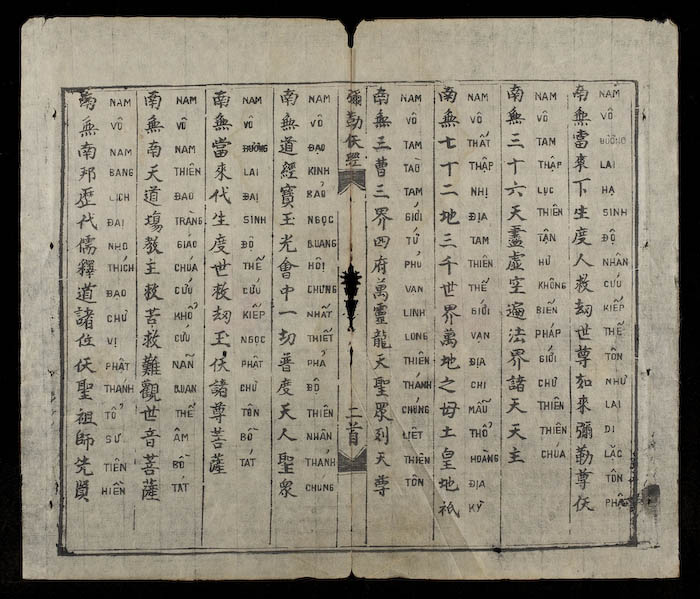 南無當來下生度人救刼世尊如來彌勒尊仸
NAM VÔ ĐƯỜNG LAI HẠ SINH ĐỘ NHÂN CỨU KIẾP THẾ TÔN NHƯ LAI DI LẶC TÔN PHẬT
南無三十六天盡虛空遍法界諸天天主
NAM VÔ TAM THẬP LỤC THIÊN TẬN HƯ KHÔNG BIẾN PHÁP GIỚI CHƯ THIÊN THIÊN CHÚA
南無七十二地三千世界萬地之母土皇地祇
NAM VÔ THẤT THẬP NHỊ ĐỊA TAM THIÊN THẾ GIỚI VẠN ĐỊA CHI MẪU THỔ HOÀNG ĐỊA KỲ
南無三曹三界四府萬靈龍天聖眾列天尊
NAM VÔ TAM TÀO TAM GIỚI TỨ PHỦ VẠN LINH LONG THIÊN THÁNH CHÚNG LIỆT THIÊN TÔN
彌勒仸經 二首
南無道經寶玉光會中一切普度天人聖眾
NAM VÔ ĐẠO KINH BẢO NGỌC QUANG HỘI CHƯNG NHẤT THIẾT PHẢ ĐỘ THIÊN NHÂN THÁNH CHÚNG
南無當來代生度世救刼玉仸諸尊菩薩
NAM VÔ ĐƯỜNG LAI ĐẠI SINH ĐỘ THẾ CỨU KIẾP NGỌC PHẬT CHƯ TÔN BỒ TÁT
南無南天道塲教主救苦救難觀世音菩薩
NAM VÔ NAM THIÊN ĐẠO TRÀNG GIÁO CHÚA CỨU KHỔ CỨU NẠN QUAN THẾ ÂM BỒ TÁT
南無南邦歷代儒釋道諸位仸聖祖師先賢
NAM VÔ NAM BANG LỊCH ĐẠI NHO THÍCH ĐẠO CHƯ VỊ PHẬT THÁNH TỔ SƯ TIÊN HIỀN